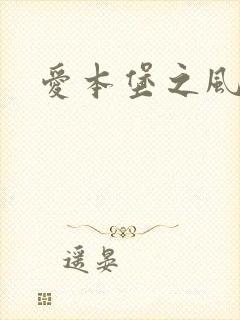 愛本堡之風
遥晏